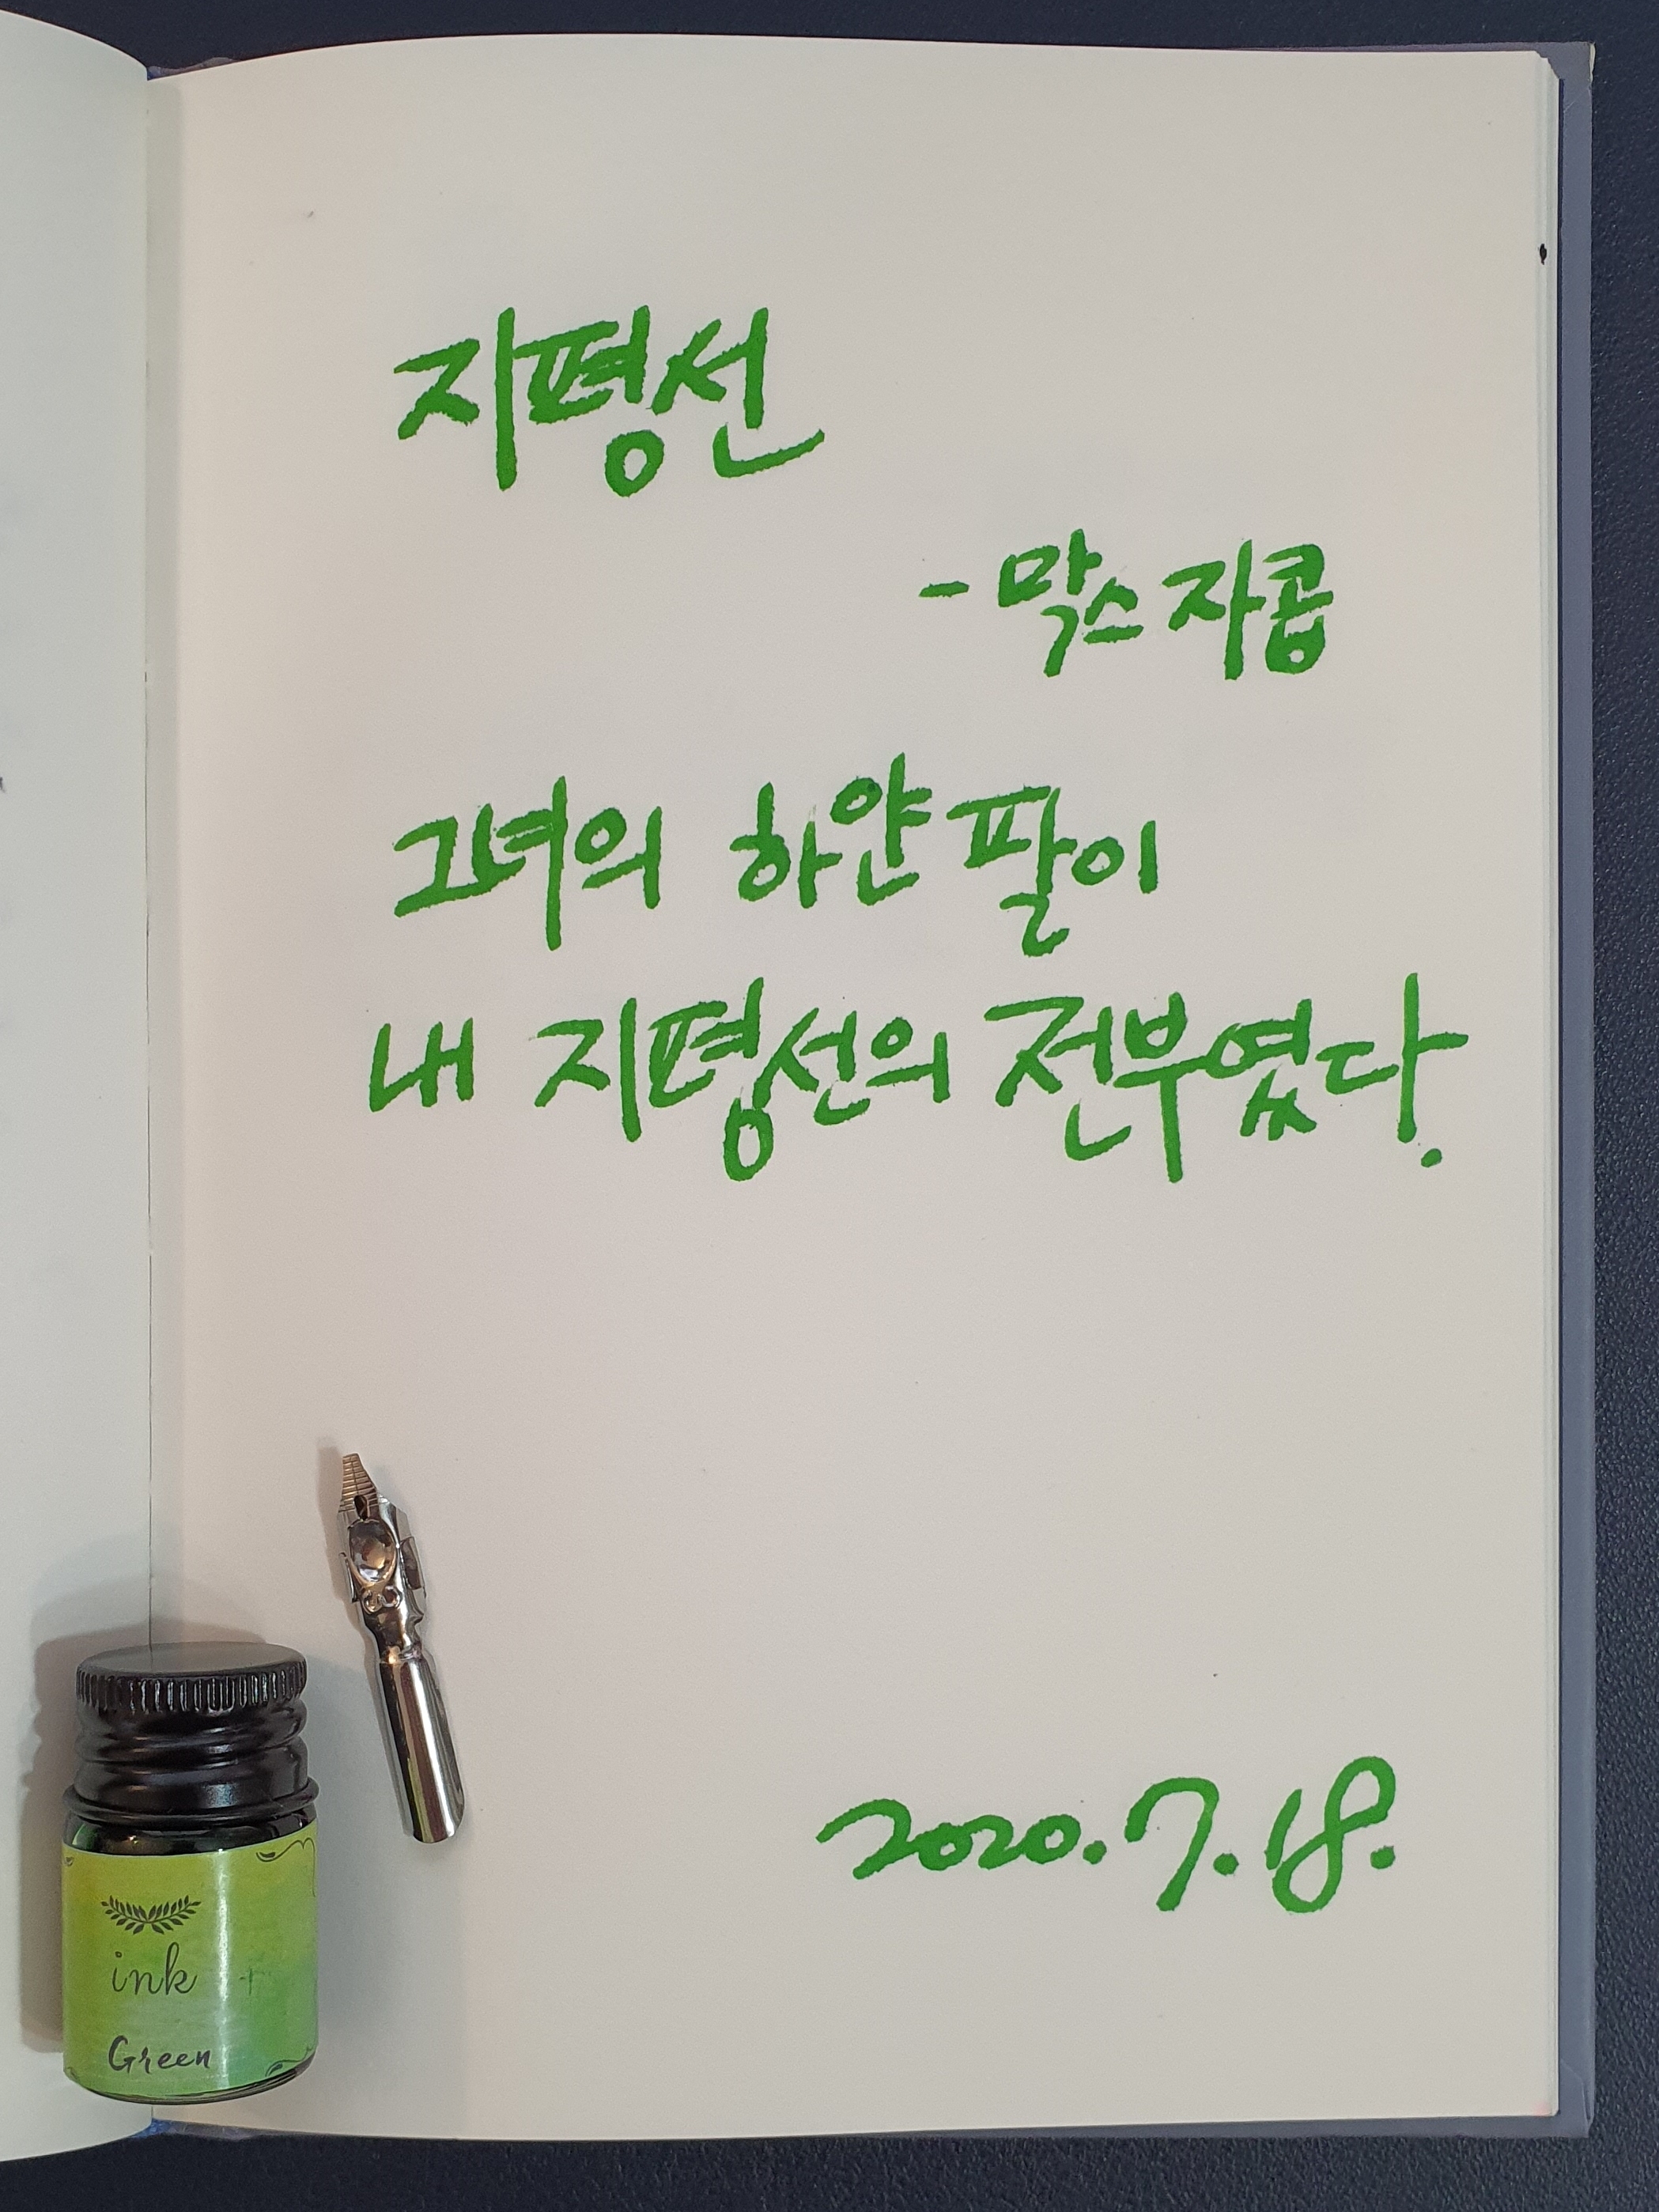 지평선
- 막스 자콥
그녀의 하얀 팔이
내 지평선의 전부였다.
2020. 7. 18.
ink
Green